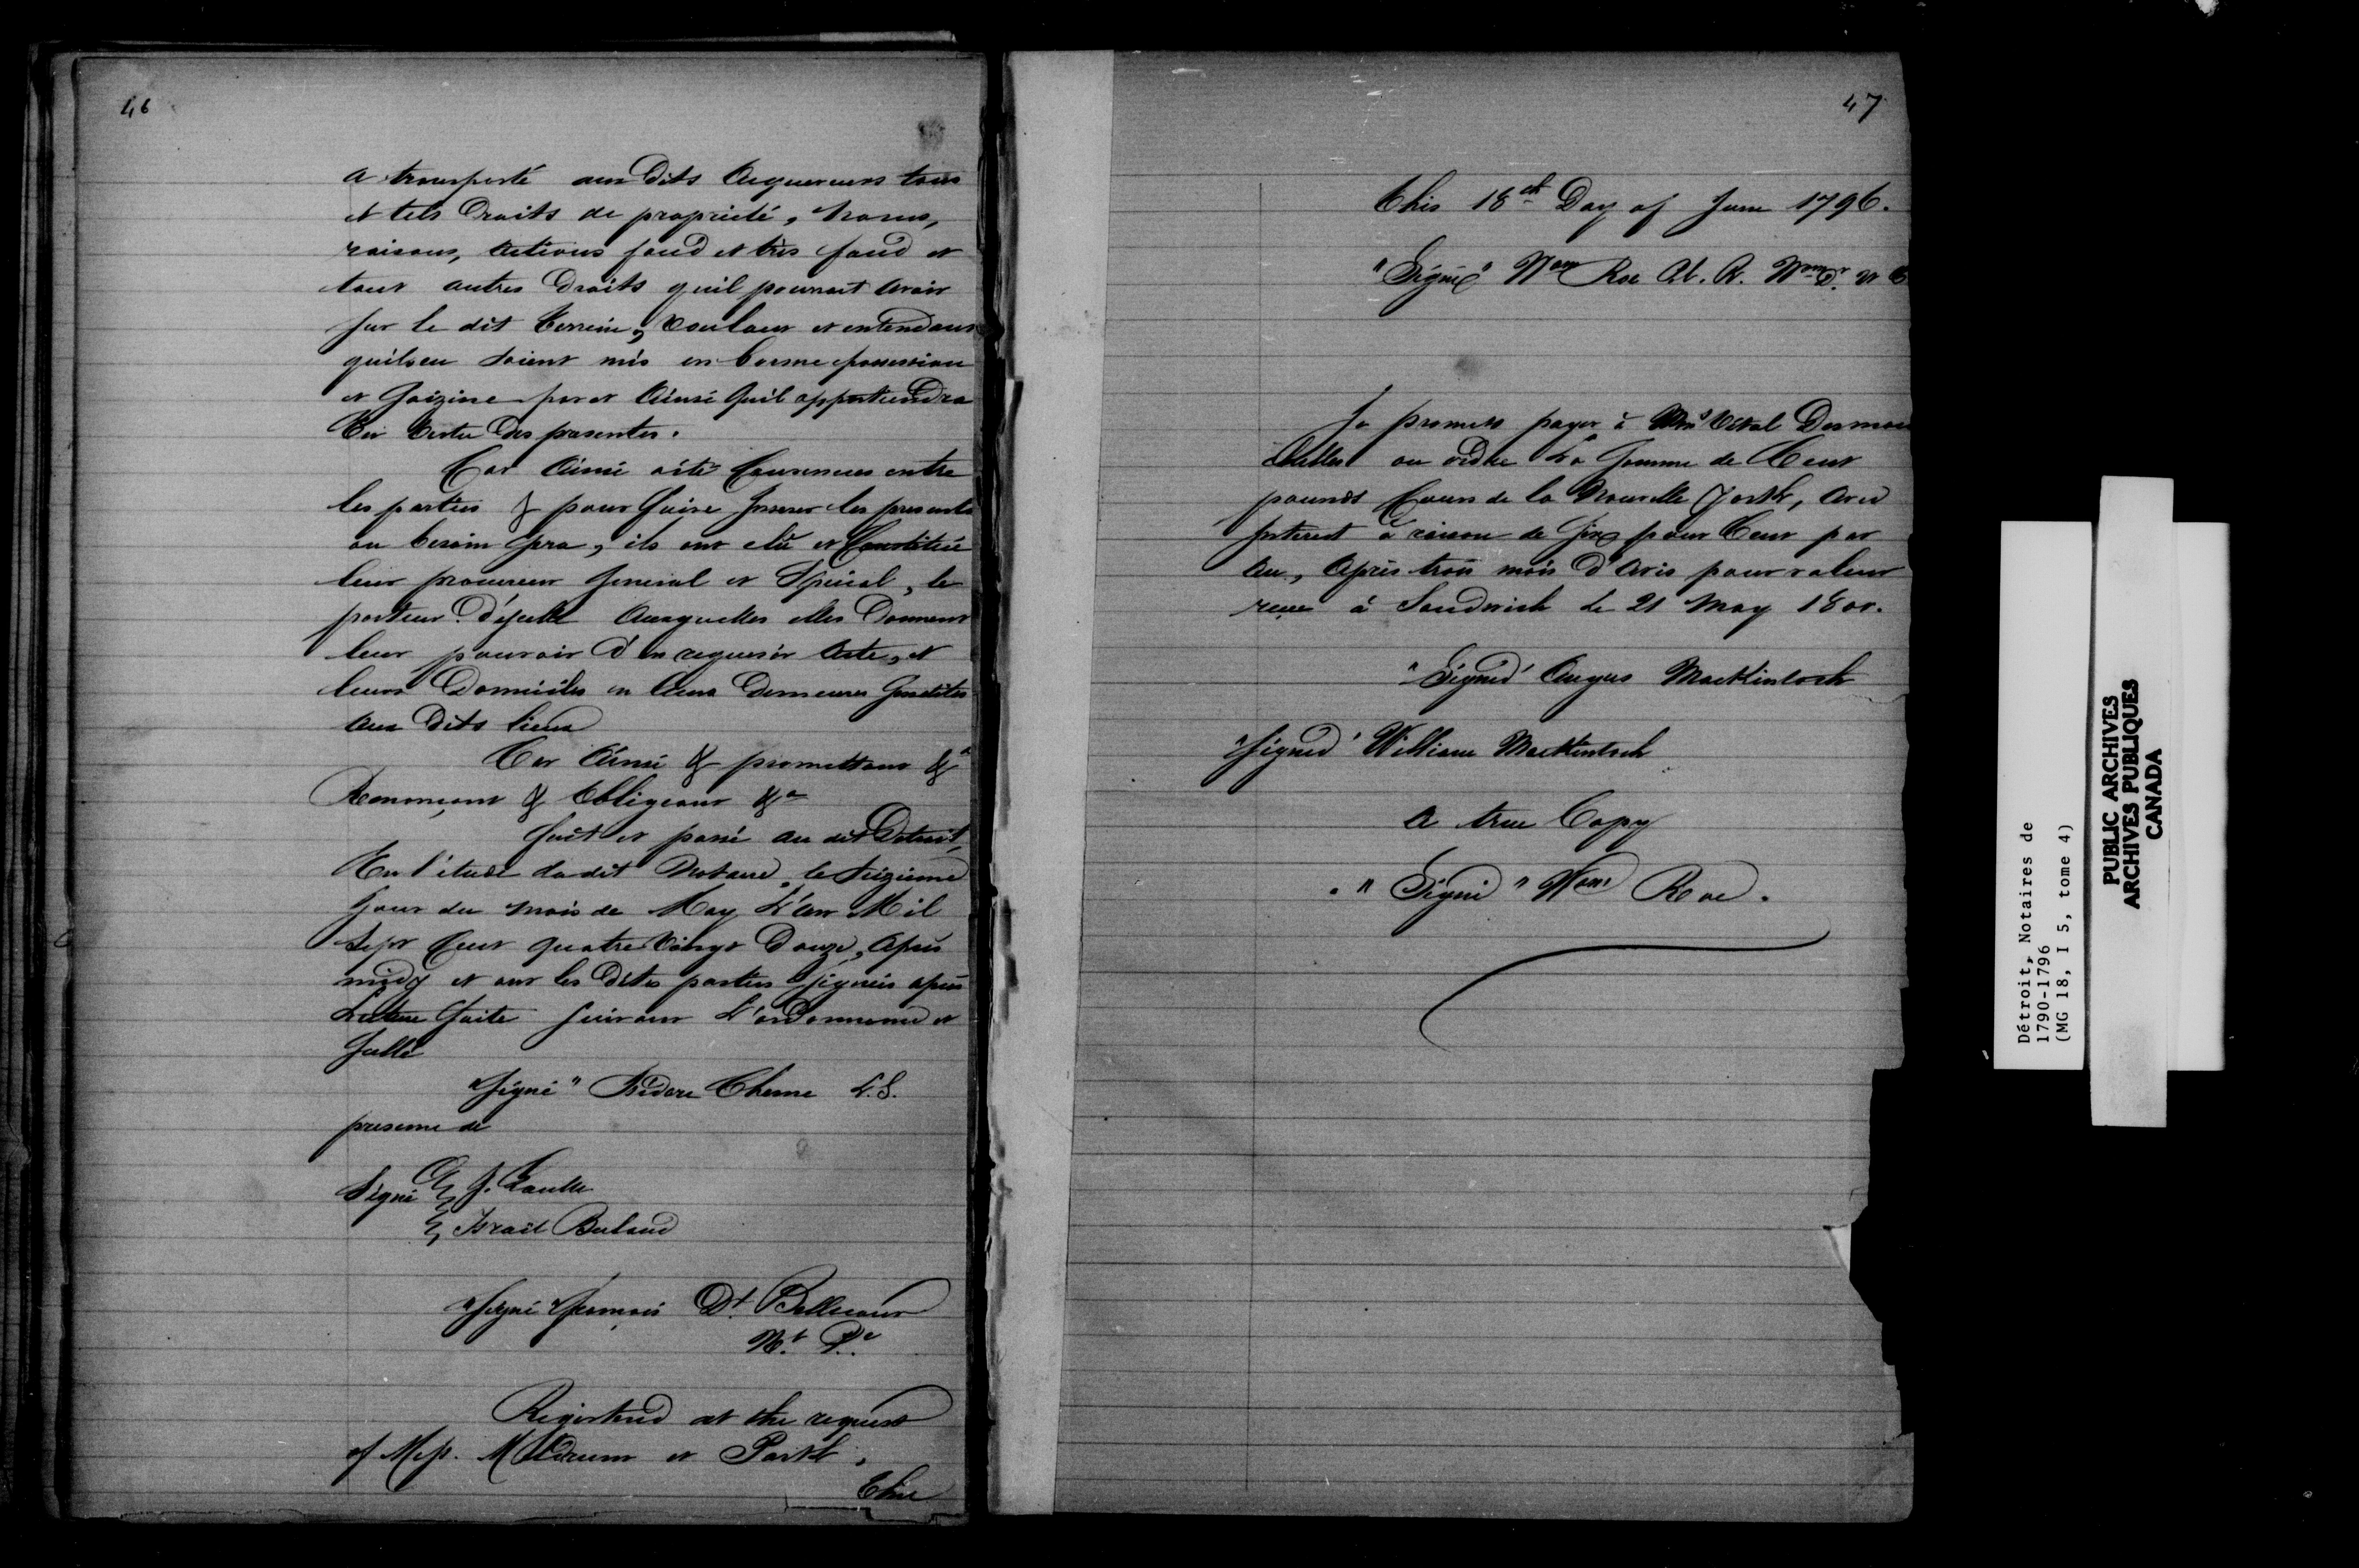 46
a transporté aux Dits Acquereurs tous
et tels Droits de propriété, noms,
raisons, Actions fond et très fond et
tous autres Droits qu'il pourroit avoir
sur le dit Terrein, voulant et entendant
qu'ils en soient mis en bonne possession
et Saizine par et Ainsi qu'il appartiendra
En Vertu Des presentes.
Car Ainsi a été Convenues entre
les parties & pour faire Insinuer les presents
ou besoin sera, ils ont elû et Constitué
leur procureur General et Special, le
porteur D'icelle Auxquelles elles Donnent
leur pouvoir D'en requerir Acte, et
leurs Domiciles en leurs Demeures susdites
aux Dits lieux
Car Ainsi & promettant &a
Renonçant & Obligeant &a
fait et passé au dit Detroit,
En l'étude du dit Notaire, le Seizieme
Jour du mois de May L'an Mil
Sept Cent quatre Vingt Douze, Après
midy et ont les Dites parties Signées après
Lecture faite suivant L'ordonnance et
Scellé
"signé" Isidore Chesne L.S.
presence de
Signé
Israël Ruland
"signé" François Dt Bellecour
Nt. Pc.
Registered at the request
of Mess. Meldrum et Park,
This
47
This 18th Day of June 1796.
"Signé" Wm Roe Ct. R.
Je promets payer à Mrs Vital Desmou
chelles ou ordre La Somme de Cent
pounds Cours de la Nouvelle York, avec
Interest à raison de Six pour Cent par
an, après trois mois D'avis pour valeur
reçue à Sandwich Le 21 May 1801.
"Signed" Angus MacKintosh
"Signed" William MacKintosh
A true Copy
"Signé" Wm Roe.
Détroit, Notaires de
1790-1796
(MG 18, I 5, tome 4)
PUBLIC ARCHIVES
ARCHIVES PUBLIQUES
CANADA